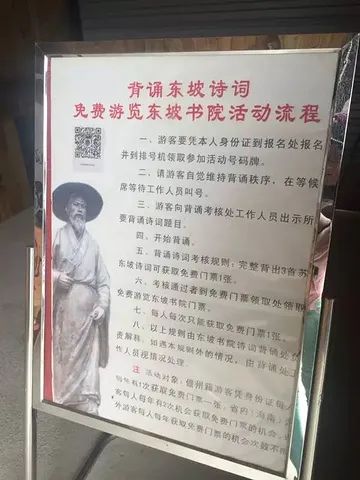 背诵东坡诗词
免费游览东坡书院活动流程
一、游客要凭本人身份证到报名处报名
并到排号机领取参加活动号码牌。
二、请游客自觉维持背诵秩序，在等候
席等待工作人员叫号。
三、游客向背诵考核处工作人员出示所
要背诵诗词题目。
四、开始背诵。
五、背诵诗词考核规则：完整背出3首苏
东坡诗词可获取免费门票1张。
六、考核通过者到免费门票领取处领取
免费游览东坡书院门票。
七、每人每次只能获取免费门票1张。
八、以上规则由东坡书院诗词背诵处负
责解释，如遇本规则外的情况，由背诵处工
作人员视情况处理。
注 活动对象：儋州籍游客凭身份证每人
每年有1次获取免费门票一张，省内（海南）
客每人每年有2次机会获取免费门票的机会，
外游客每人每年获取免费门票的机会次数不